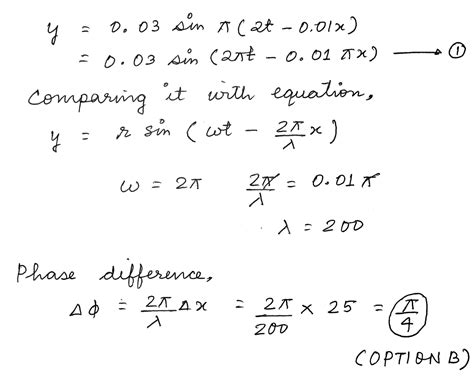 y = 0.03 sin π(2t - 0.01x)
= 0.03 sin (2πt - 0.01 πx) ——→ ①
Comparing it with equation,
y = r sin (ωt - 2π/λ x)
ω = 2π 2π/λ = 0.01 π
λ = 200
Phase difference,
Δφ = 2π/λ Δx = 2π/200 × 25 = π/4
(OPTION B)